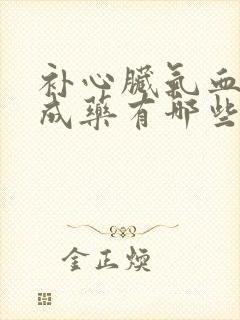 补心臟氣血
成藥有哪些
金正煥